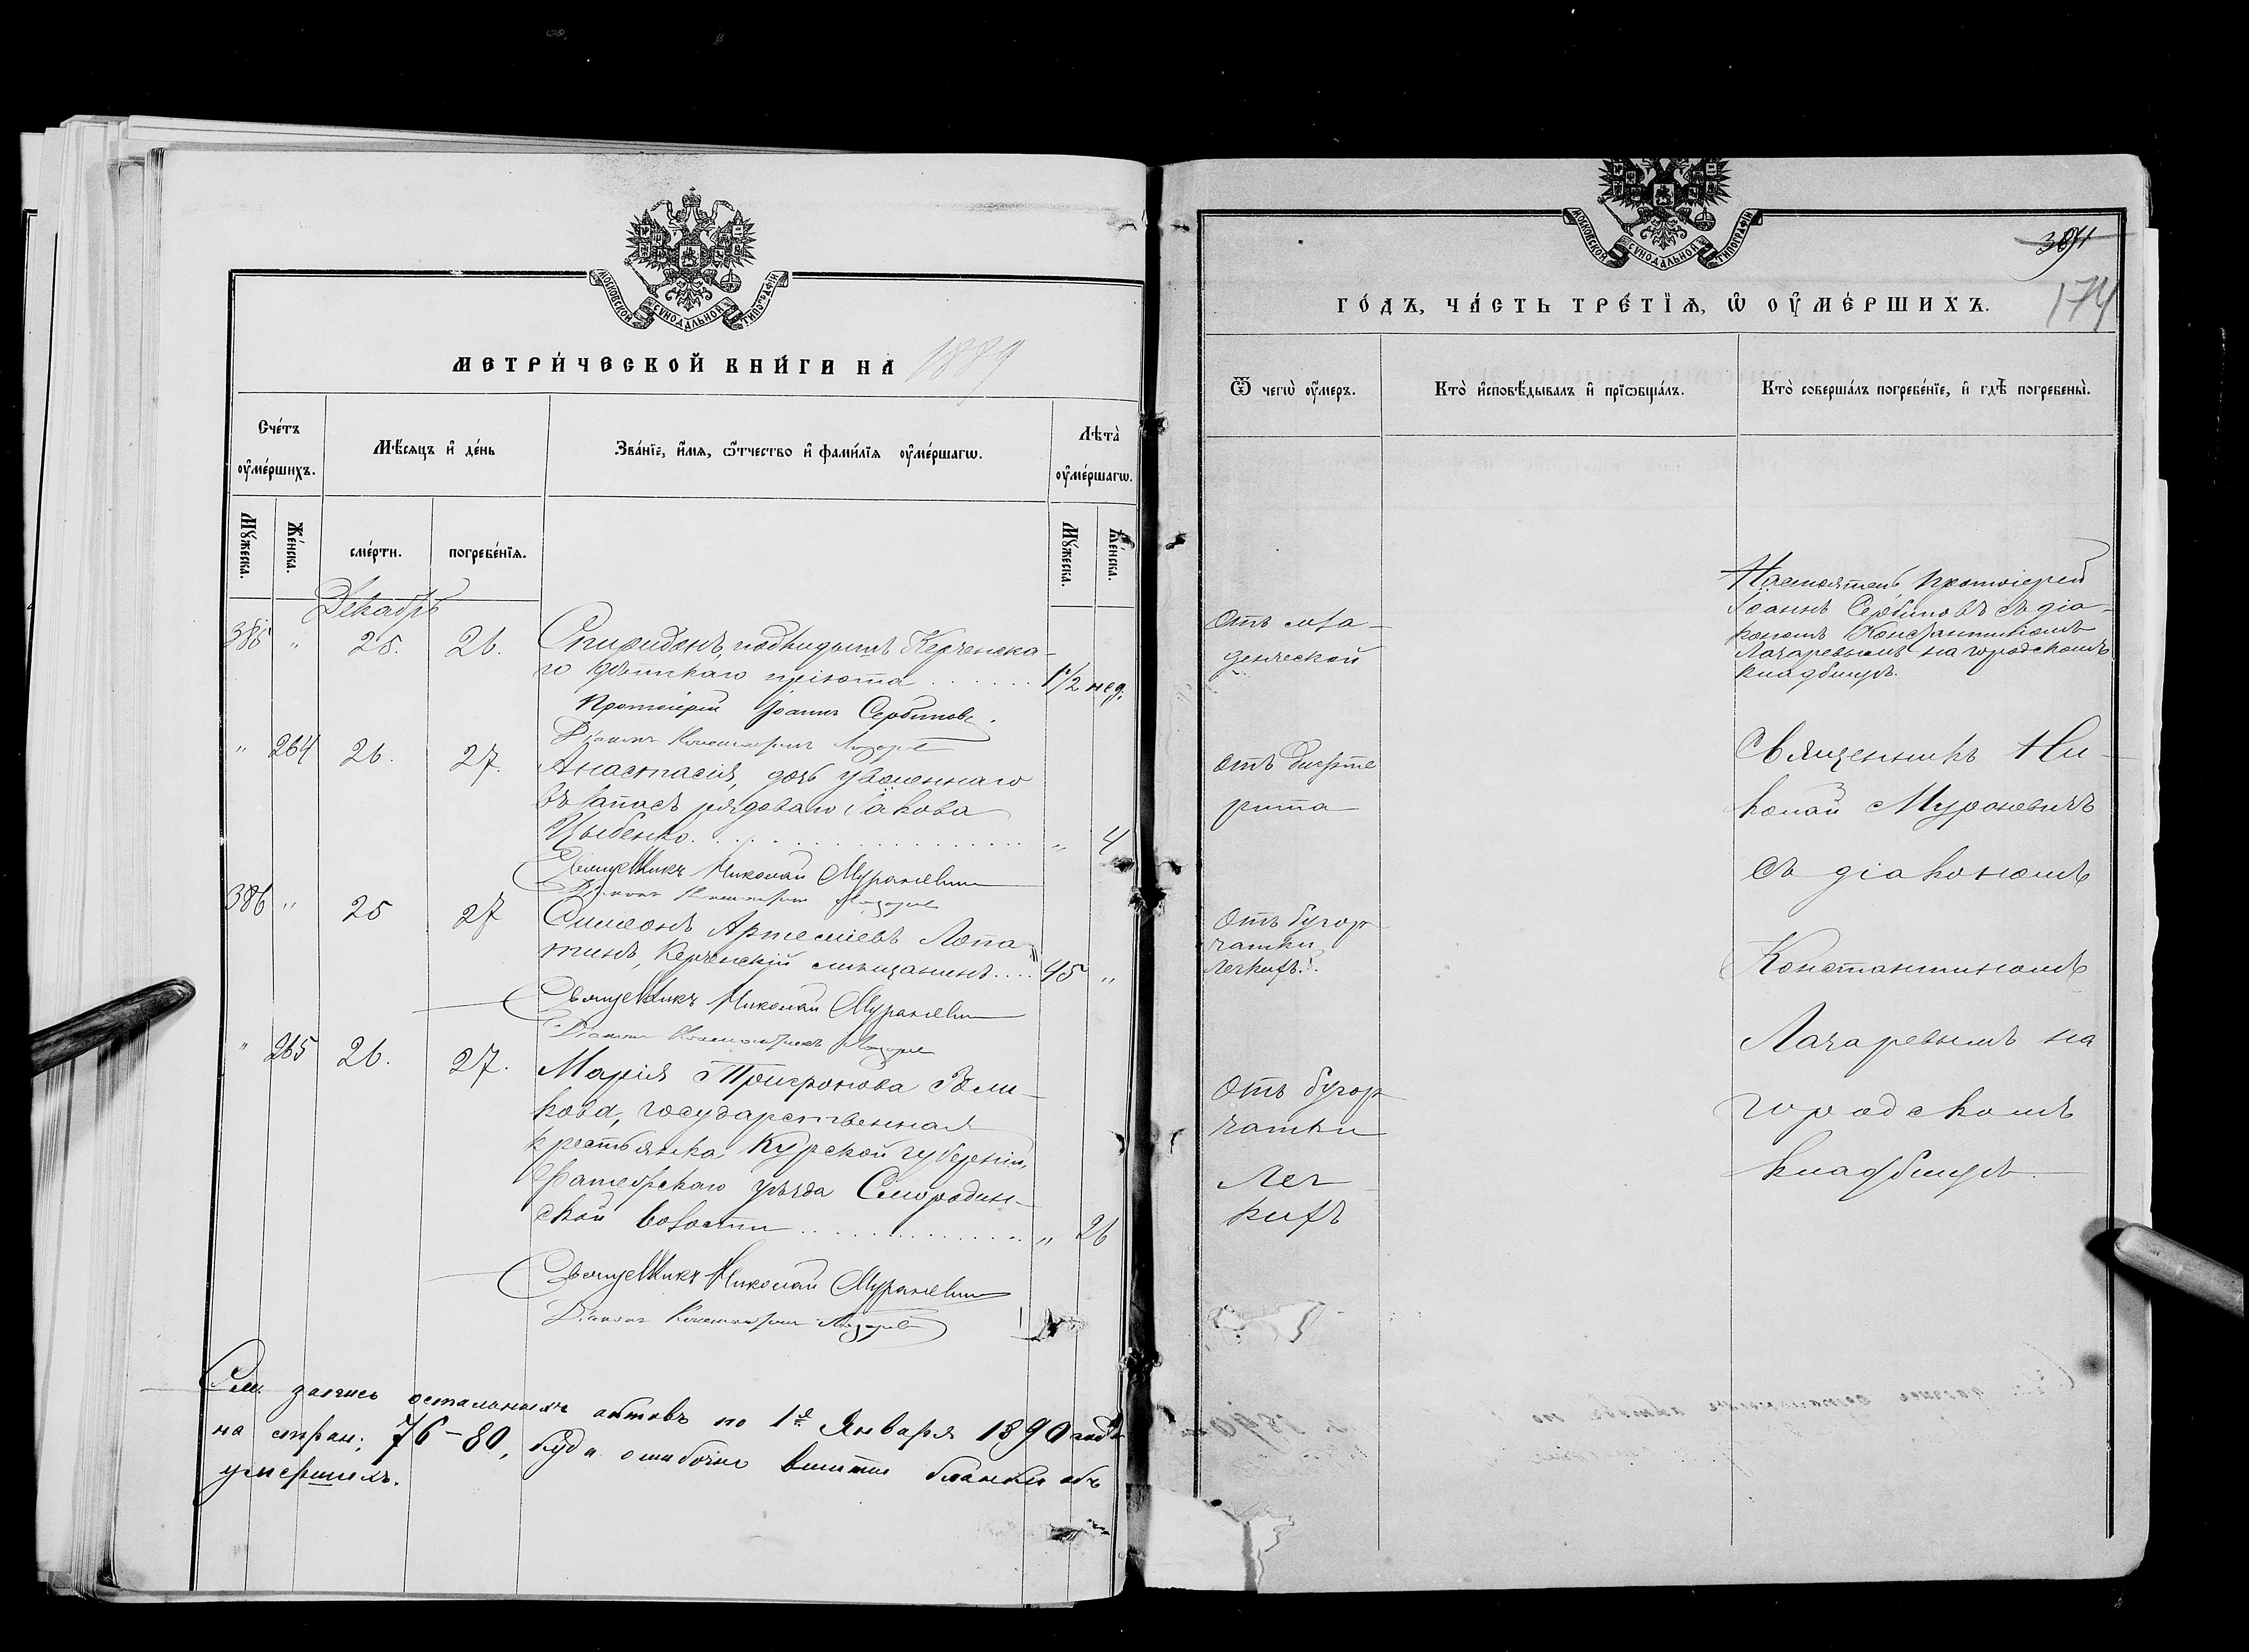 МОСКОВСКОЙ СѴНОДАЛЬНОЙ ТИПОГРАФІИ
МЕТРИ́ЧЕСКОЙ КНИ́ГИ НА 1889
Сче́тъ оу҆ме́ршихъ.
Мѣ́сѧцъ и҆ де́нь
Зва́нїе, и҆́мѧ, ѻ҆́тчество и҆ фами́лїѧ оу҆ме́ршагѡ.
Лѣ́та оу҆ме́ршагѡ.
Мꙋ́жеска.
Же́нска.
сме́рти.
погребе́нїѧ.
Мꙋ́жеска.
Же́нска.
Декабрь
385 " 25. 26. Спиридонъ, подкидышъ Керченска-
го дѣтскаго пріюта . . . . . . 1 1/2 нед.
Протоіерей Іоаннъ Сербиновъ.
Діаконъ Константинъ Лазаревъ
" 264 26. 27. Анастасія, дочь уволеннаго
въ запасъ рядоваго Іакова
Цыбенко . . . . . . . . . " 4
Священникъ Николай Мураневичъ
Діаконъ Константинъ Лазаревъ
386 " 25 27 Симеонъ Артеміевъ Лопа-
тинъ, Керченскій мѣщанинъ . . . . 45 "
Священникъ Николай Мураневичъ
Діаконъ Константинъ Лазаревъ
" 265 26. 27. Марія Тригронова
кова, государственная
крестьянка Курской губерніи,
Фатежскаго уѣзда Смородин-
ской волости . . . . . . . . . " 26
Священникъ Николай Мураневичъ
Діаконъ Константинъ Лазаревъ
См. запись остальныхъ актовъ по 1е Января 1890 года
на стран. 76-80, куда ошибочно вшиты бланки объ
умершихъ.
МОСКОВСКОЙ СѴНОДАЛЬНОЙ ТИПОГРАФІИ
174
ГО́ДЪ, ЧА́СТЬ ТРЕ́ТЇѦ, Ѡ҆ ОУ҆МЕ́РШИХЪ.
Ѿ чегѡ̀ оу҆́меръ.
Кто̀ и҆сповѣ́дывалъ и҆ прїѡбща́лъ.
Кто̀ соверша́лъ погребе́нїе, и҆ гдѣ̀ погребены̀.
Отъ мла-
денческой
Настоятель протоіерей
Іоаннъ Сербиновъ съ діа-
кономъ Константиномъ
Лазаревымъ на городскомъ
кладбищѣ.
отъ дифте
рита
Священникъ Ни-
колай Мураневичъ
съ діакономъ
Константиномъ
Лазаревымъ на
городскомъ
кладбищѣ.
Отъ бугор-
чатки
легкихъ.
Отъ бугор-
чатки
лег-
кихъ